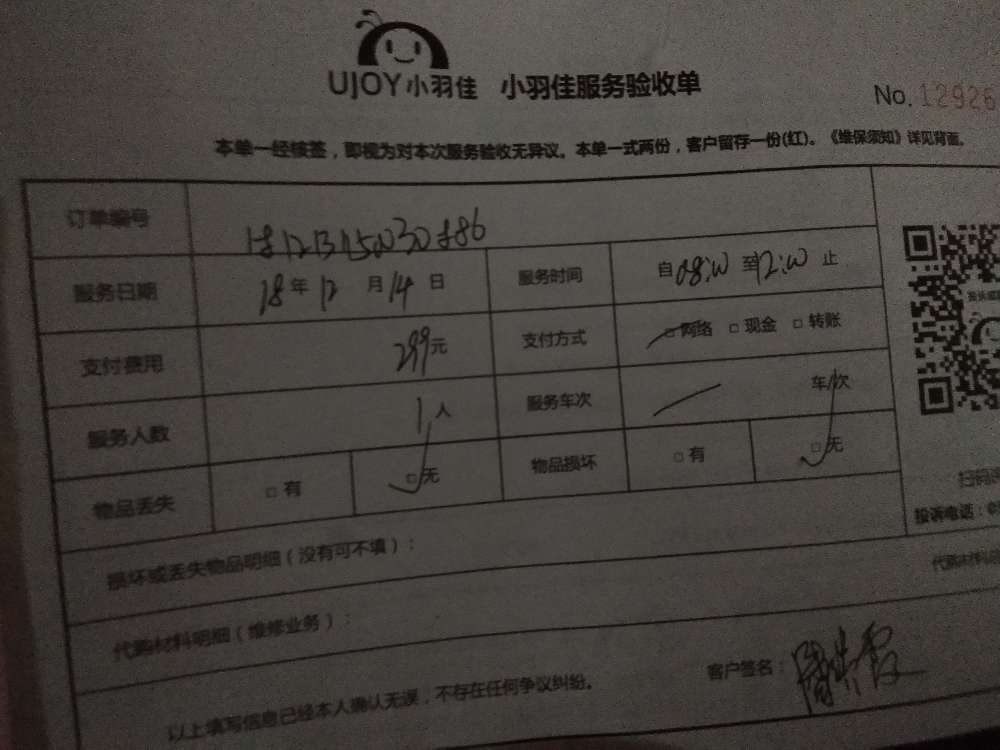 UJOY小羽佳 小羽佳服务验收单
No.12926
本单一经核签，即视为对本次服务验收无异议。本单一式两份，客户留存一份(红)。《维保须知》详见背面。
订单编号
服务日期 18年12月14日 服务时间 自08:00至12:00止
支付费用 299元 支付方式 □网络 □现金 □转账
服务人数 1人 服务车次 车/次
物品丢失 □有 □无 物品损坏 □有 □无
投诉电话：
损坏或丢失物品明细（没有可不填）：
代购材料
代购材料明细（维修业务）：
以上填写信息已经本人确认无误，不存在任何争议纠纷。 客户签名：